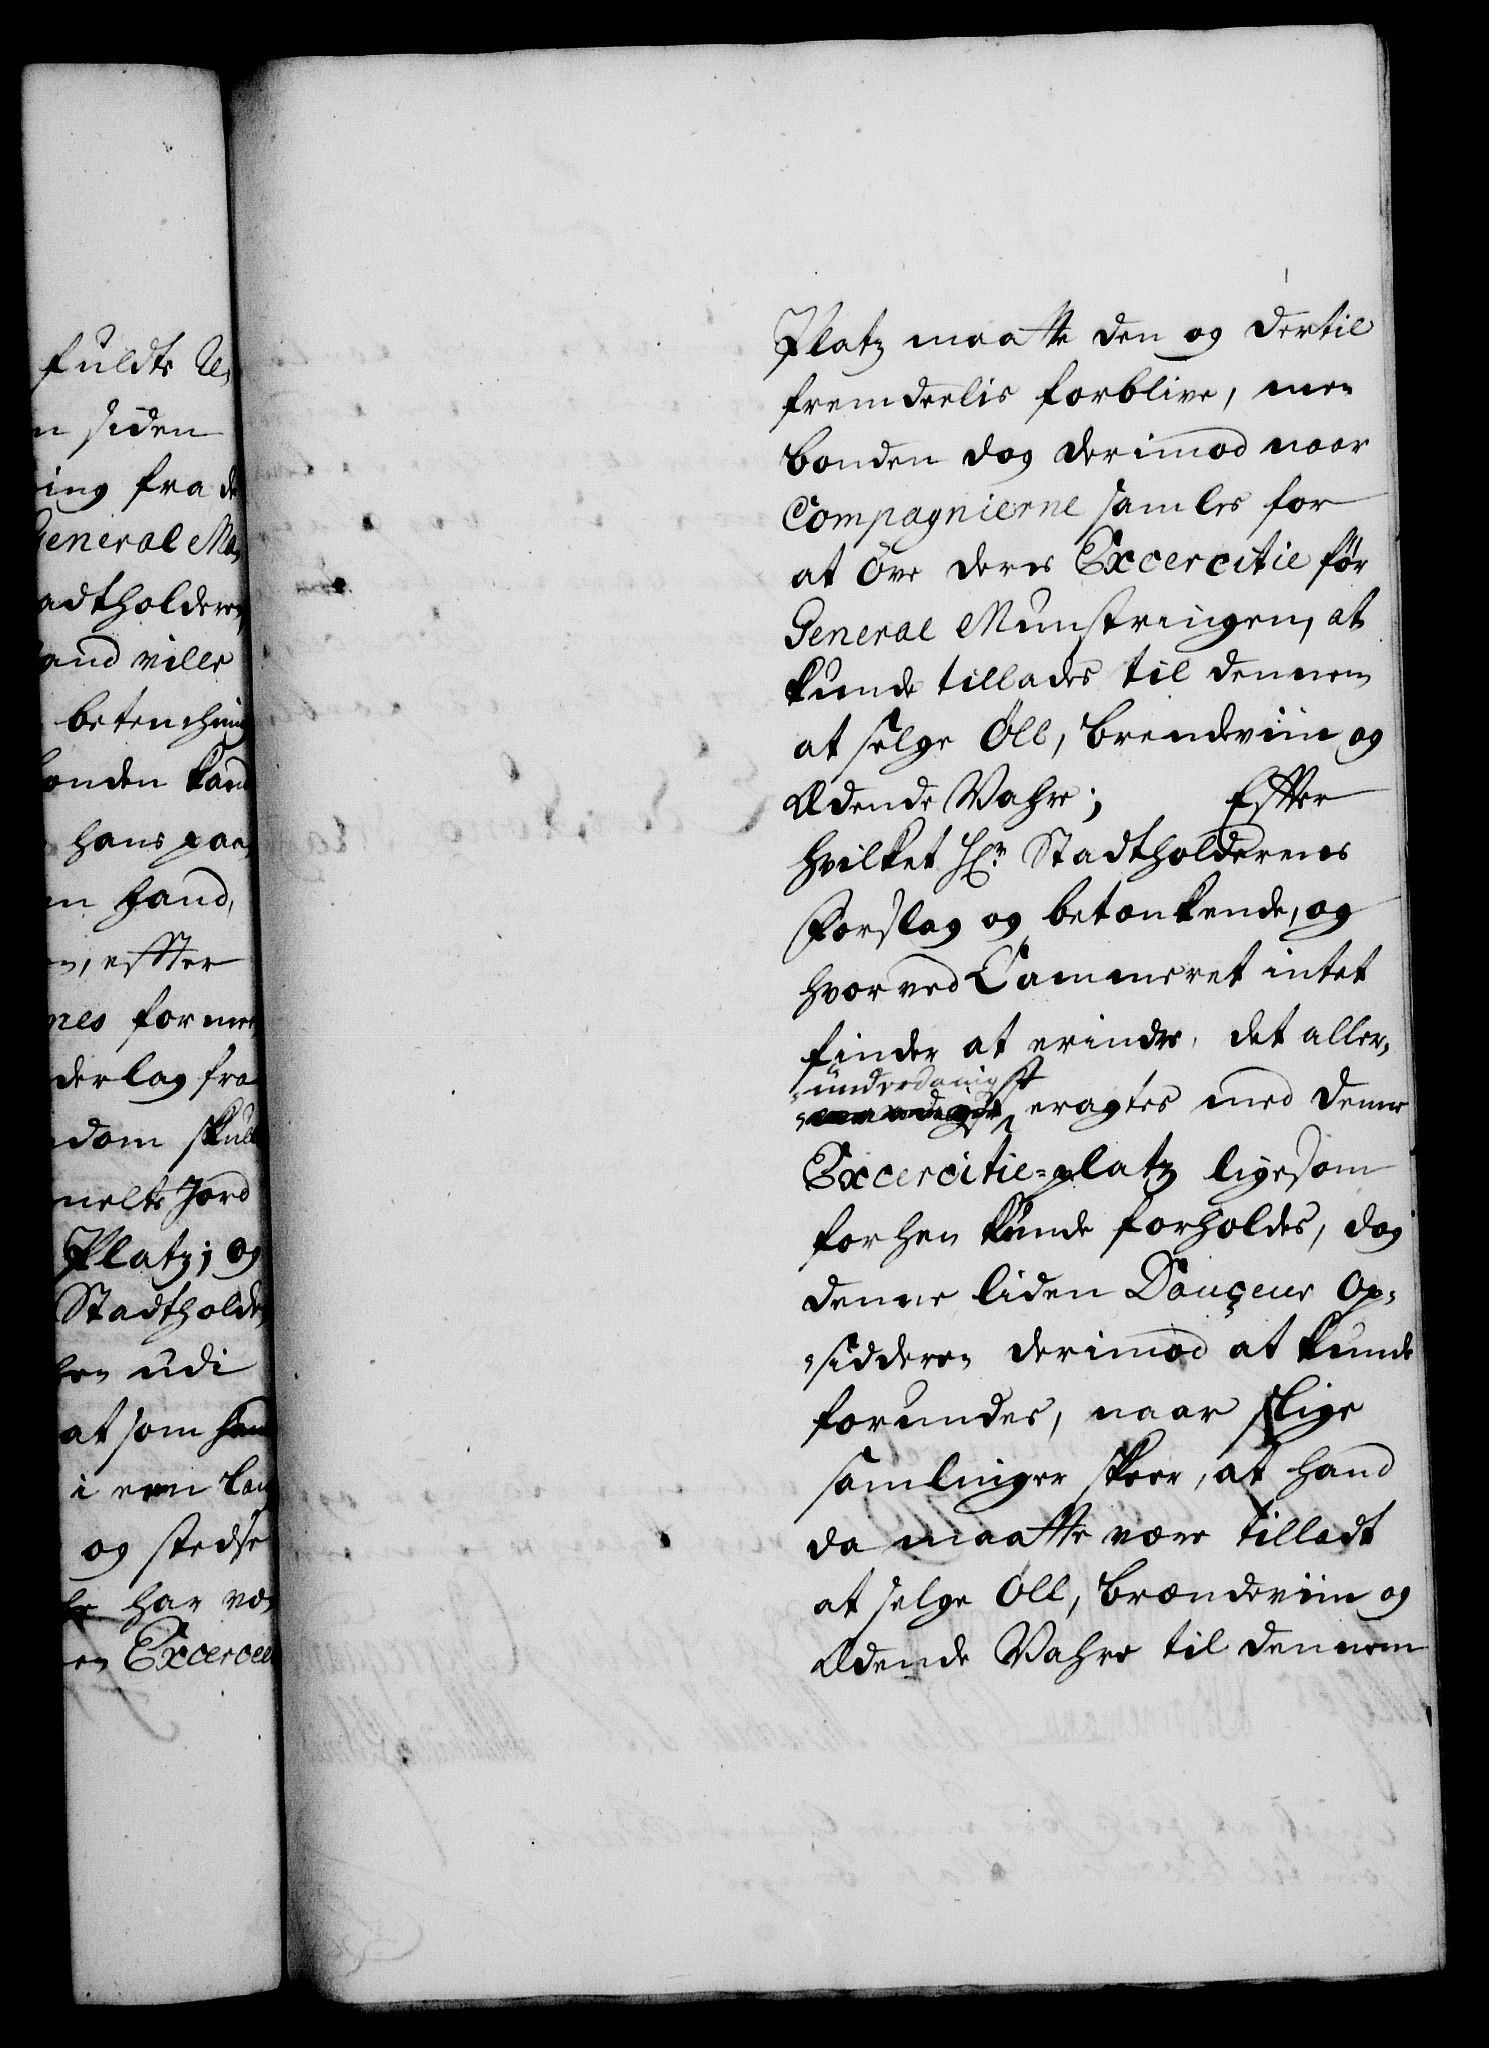 fuldte U,
n siden
ing fra d
General Mo,
adtholderen,
and ville
betenchni
onden kand
hans paa,
n fand,
n, effter
nes forme
derlag fra
dom skul
melte Jord
Platz; og
Stadtholde
hen udi
at som hand
i een lang
og stedse
he har væ,
en Excercee
Platz maatte den og dertil
fremdeelis forblive, men
bonden dog derimod naar
Compagnierne samles for
at øve deres Excercitie før
General Munstringen, at
kunde tillades til dennem
at selge Øll, brendeviin og
Ædende Vahre; Effter
hvilket Hr. Stadtholderens
Forslag og betænkende, og
hvorved Cammeret intet
finder at erindre, det aller,
underdanigst
eragtes med denne
Excercitie-platz ligesom
forhen kunde forholdes, dog
denne liden Douçeur Op,
sidderen derimod at kunde
forundes, naar slige
samlinger skeer, at hand
da maatte være tilladt
at selge Øll, brændeviin og
Ædende Vahre til dennem